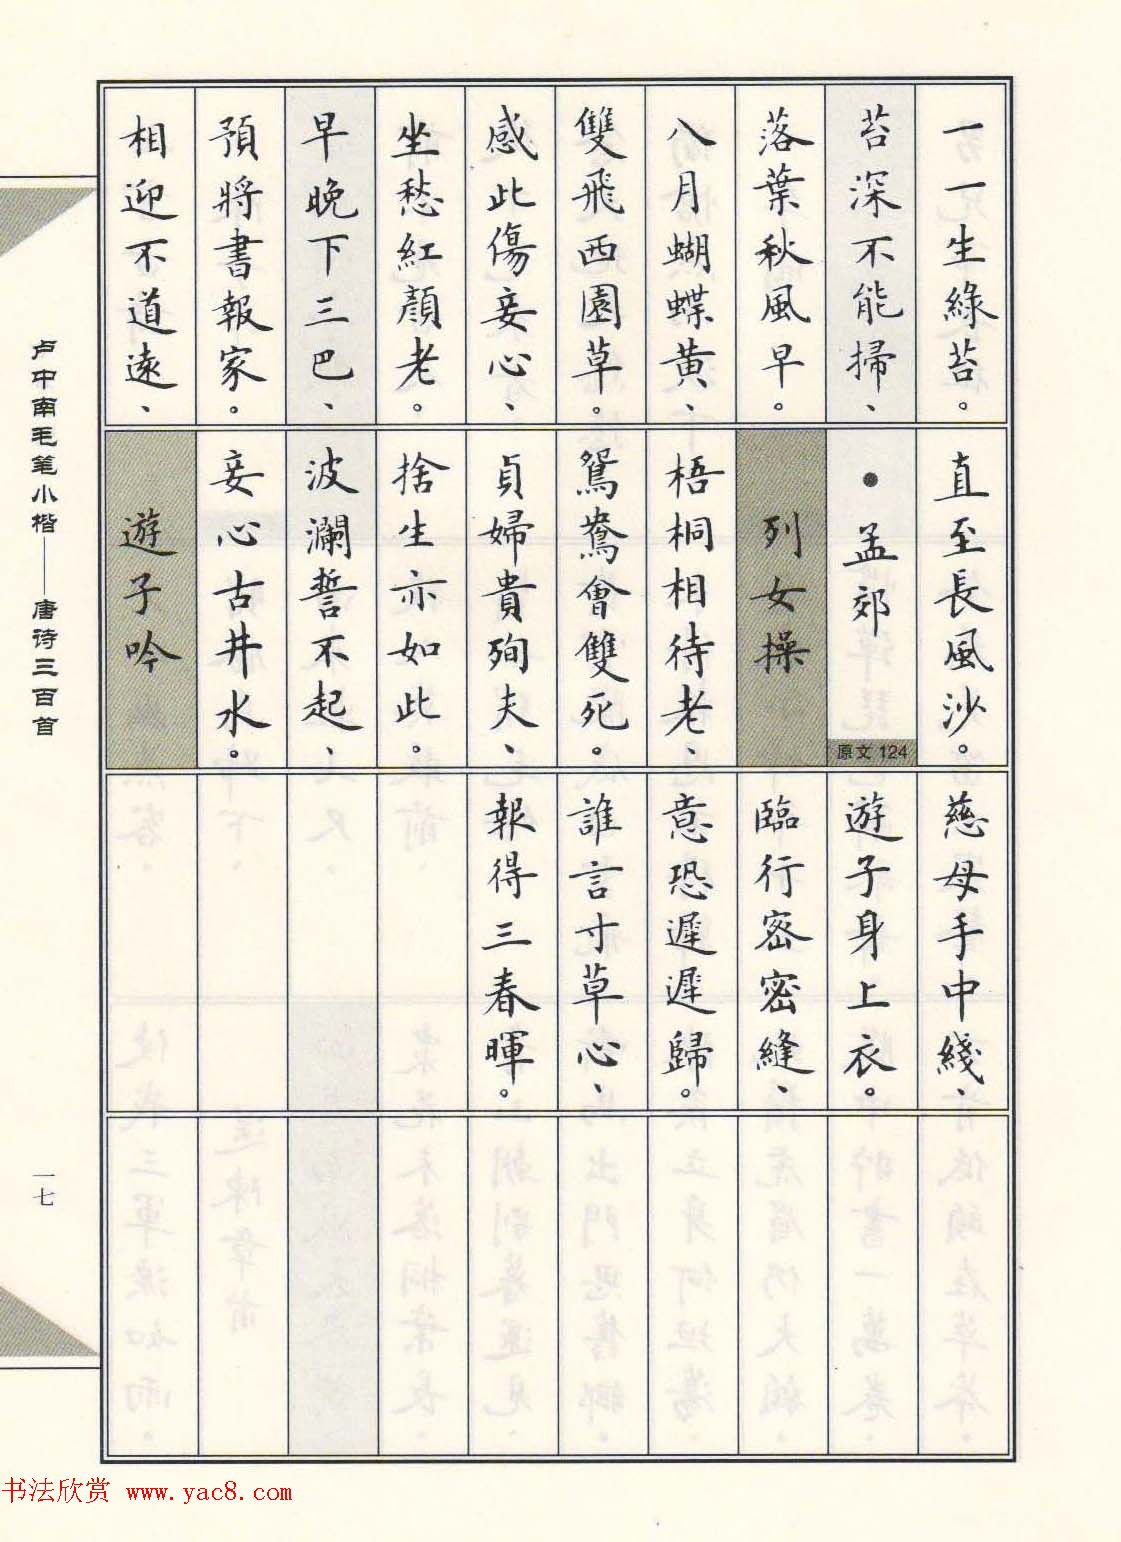 一一生綠苔。
苔深不能掃、
落葉秋風早。
八月蝴蝶黃、
雙飛西園草。
感此傷妾心、
坐愁紅顏老。
早晚下三巴、
預將書報家。
相迎不道遠、
直至長風沙。
•孟郊
列女操
原文 124
梧桐相待老、
鴛鴦會雙死。
貞婦貴殉夫、
捨生亦如此。
波瀾誓不起、
妾心古井水。
遊子吟
慈母手中綫、
遊子身上衣。
臨行密密縫、
意恐遲遲歸。
誰言寸草心、
報得三春暉。
卢中南毛笔小楷——唐诗三百首
一七
书法欣赏 www.yac8.com